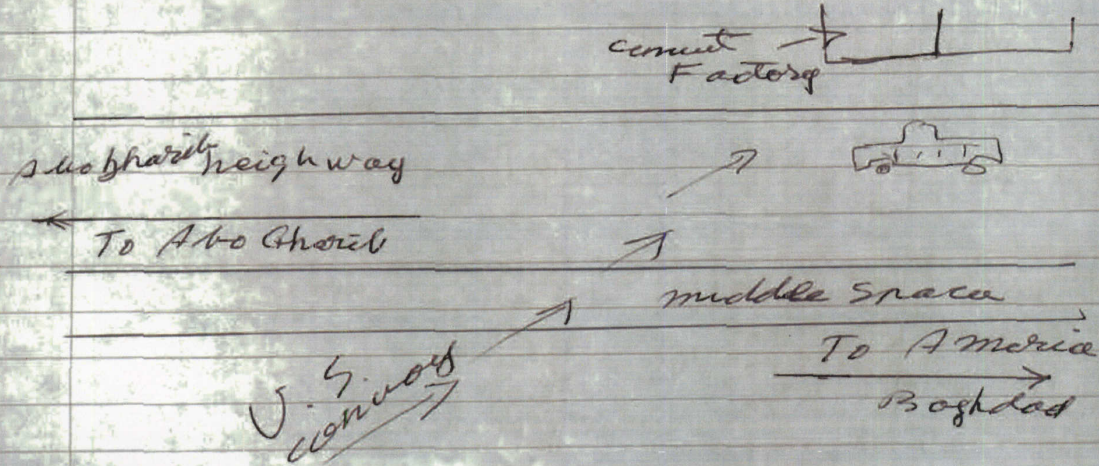 cement
Factory
Abo Gharib heighway
To Abo Gharib
middle space
To Ameria
Baghdad
U.S.
convoy